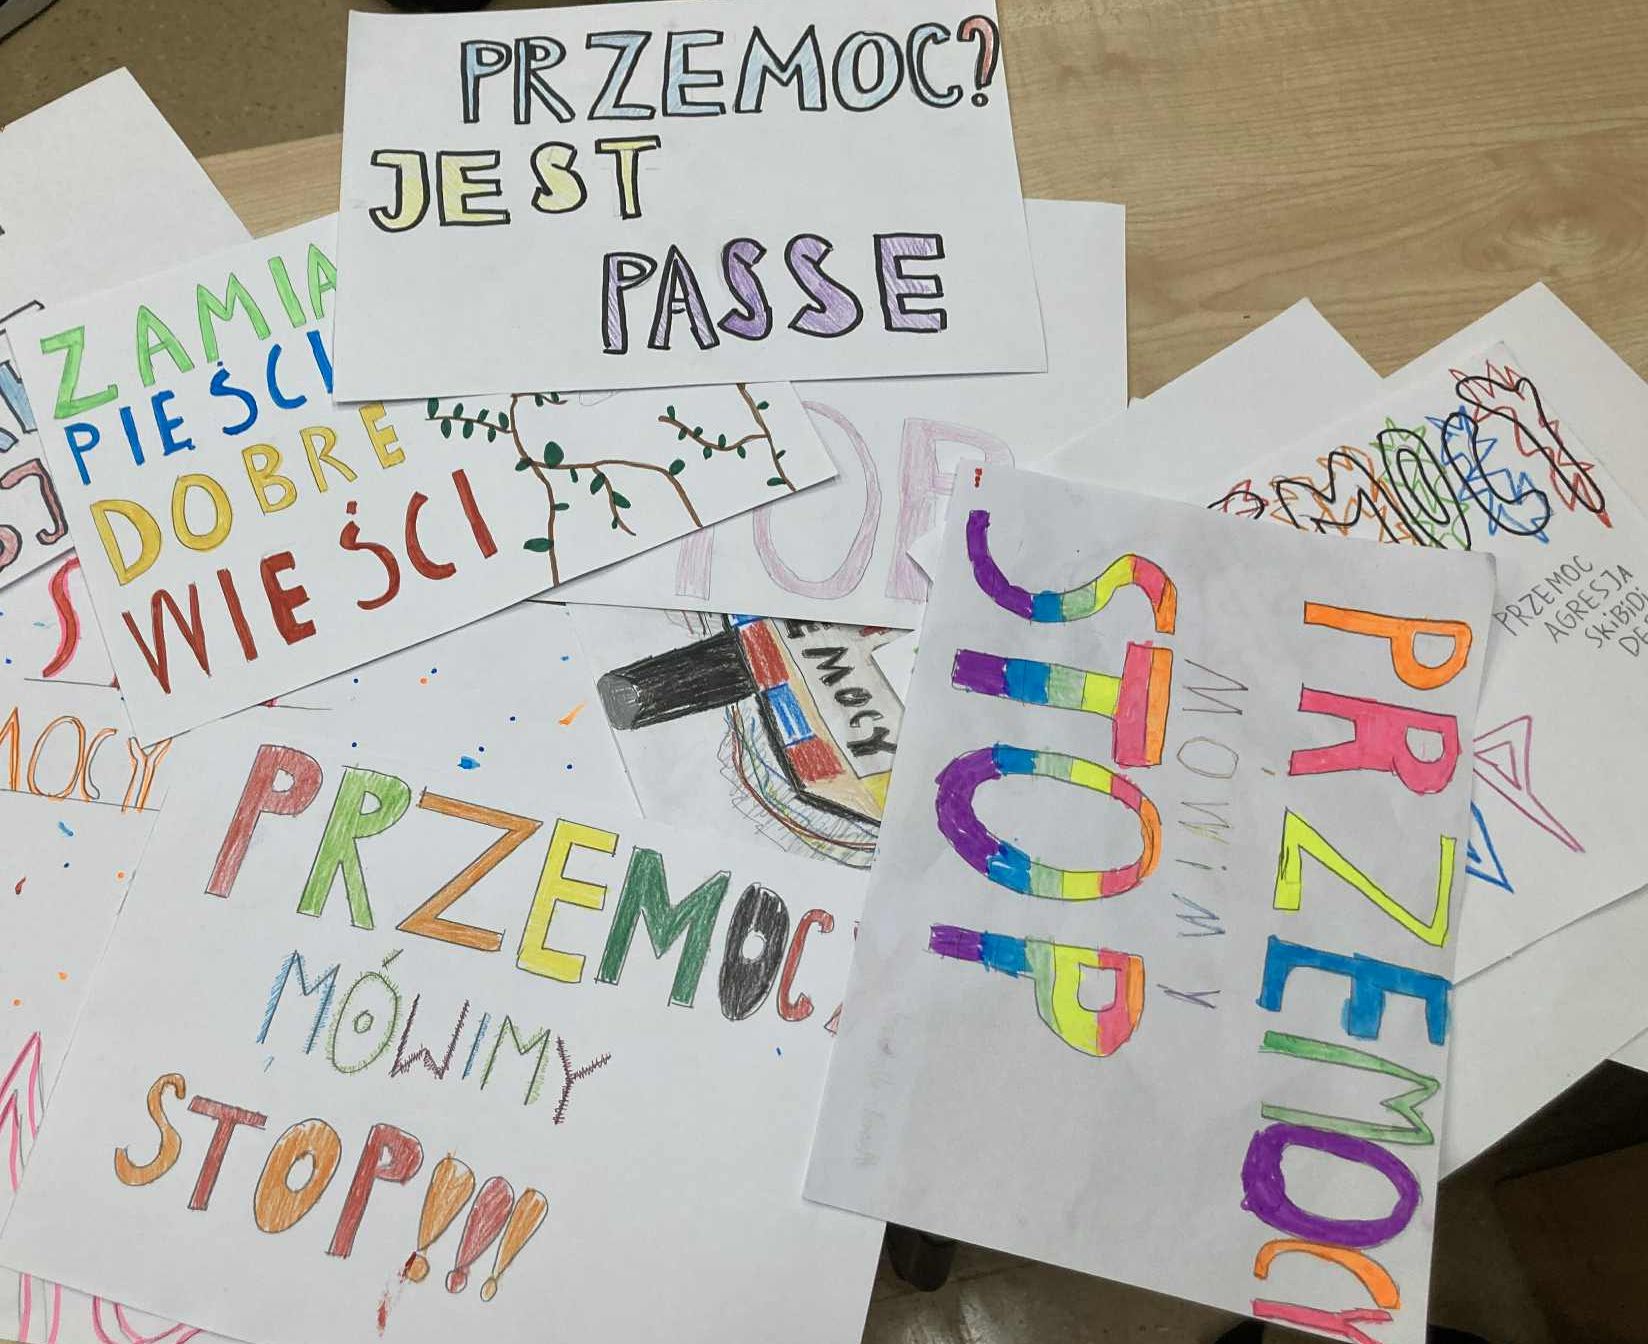 PRZEMOC?
JEST
PASSE
ZAMIA
PIEŚCI
DOBRE
WIEŚCI
TOP
MOCY
EMOCY
PRZEMOC
MÓWIMY
STOP!!!
PRZEMOCY
MÓWIMY
STOP
EMOCY
PRZEMOC
AGRESJA
SKIBIDI